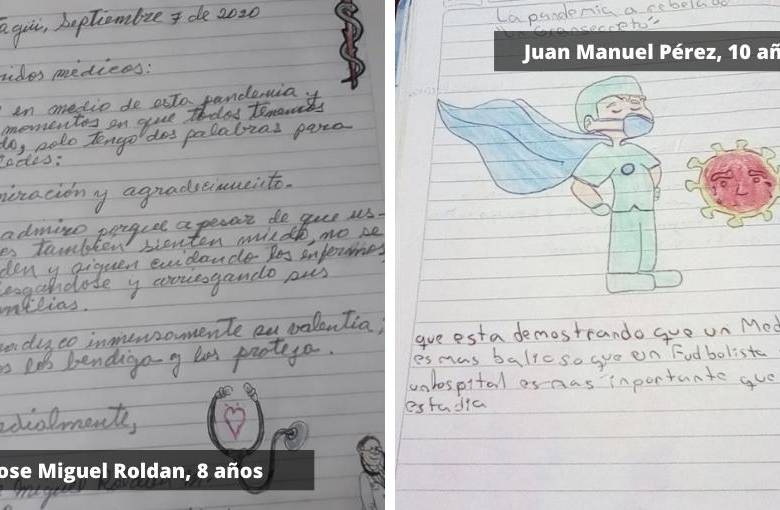 agüi, Septiembre 7 de 2020
ridos médicos:
en medio de esta pandemia y
momentos en que todos tenemos
do, solo tengo dos palabras para
edes:
miración y agradecimiento.
admiro porque apesar de que us-
es también sienten miedo, no se
den y siguen cuidando los enfermos
iesgandose y arriesgando sus
milias.
adezco inmensamente su valentia;
s los bendiga y los proteja.
dialmente,
ose Miguel Roldan, 8 años
La pandemia a rebelado
Juan Manuel Pérez, 10 añ
que esta demostrando que un Med
es mas balioso que un Fudbolista
unhospital es mas inportante que
estadia